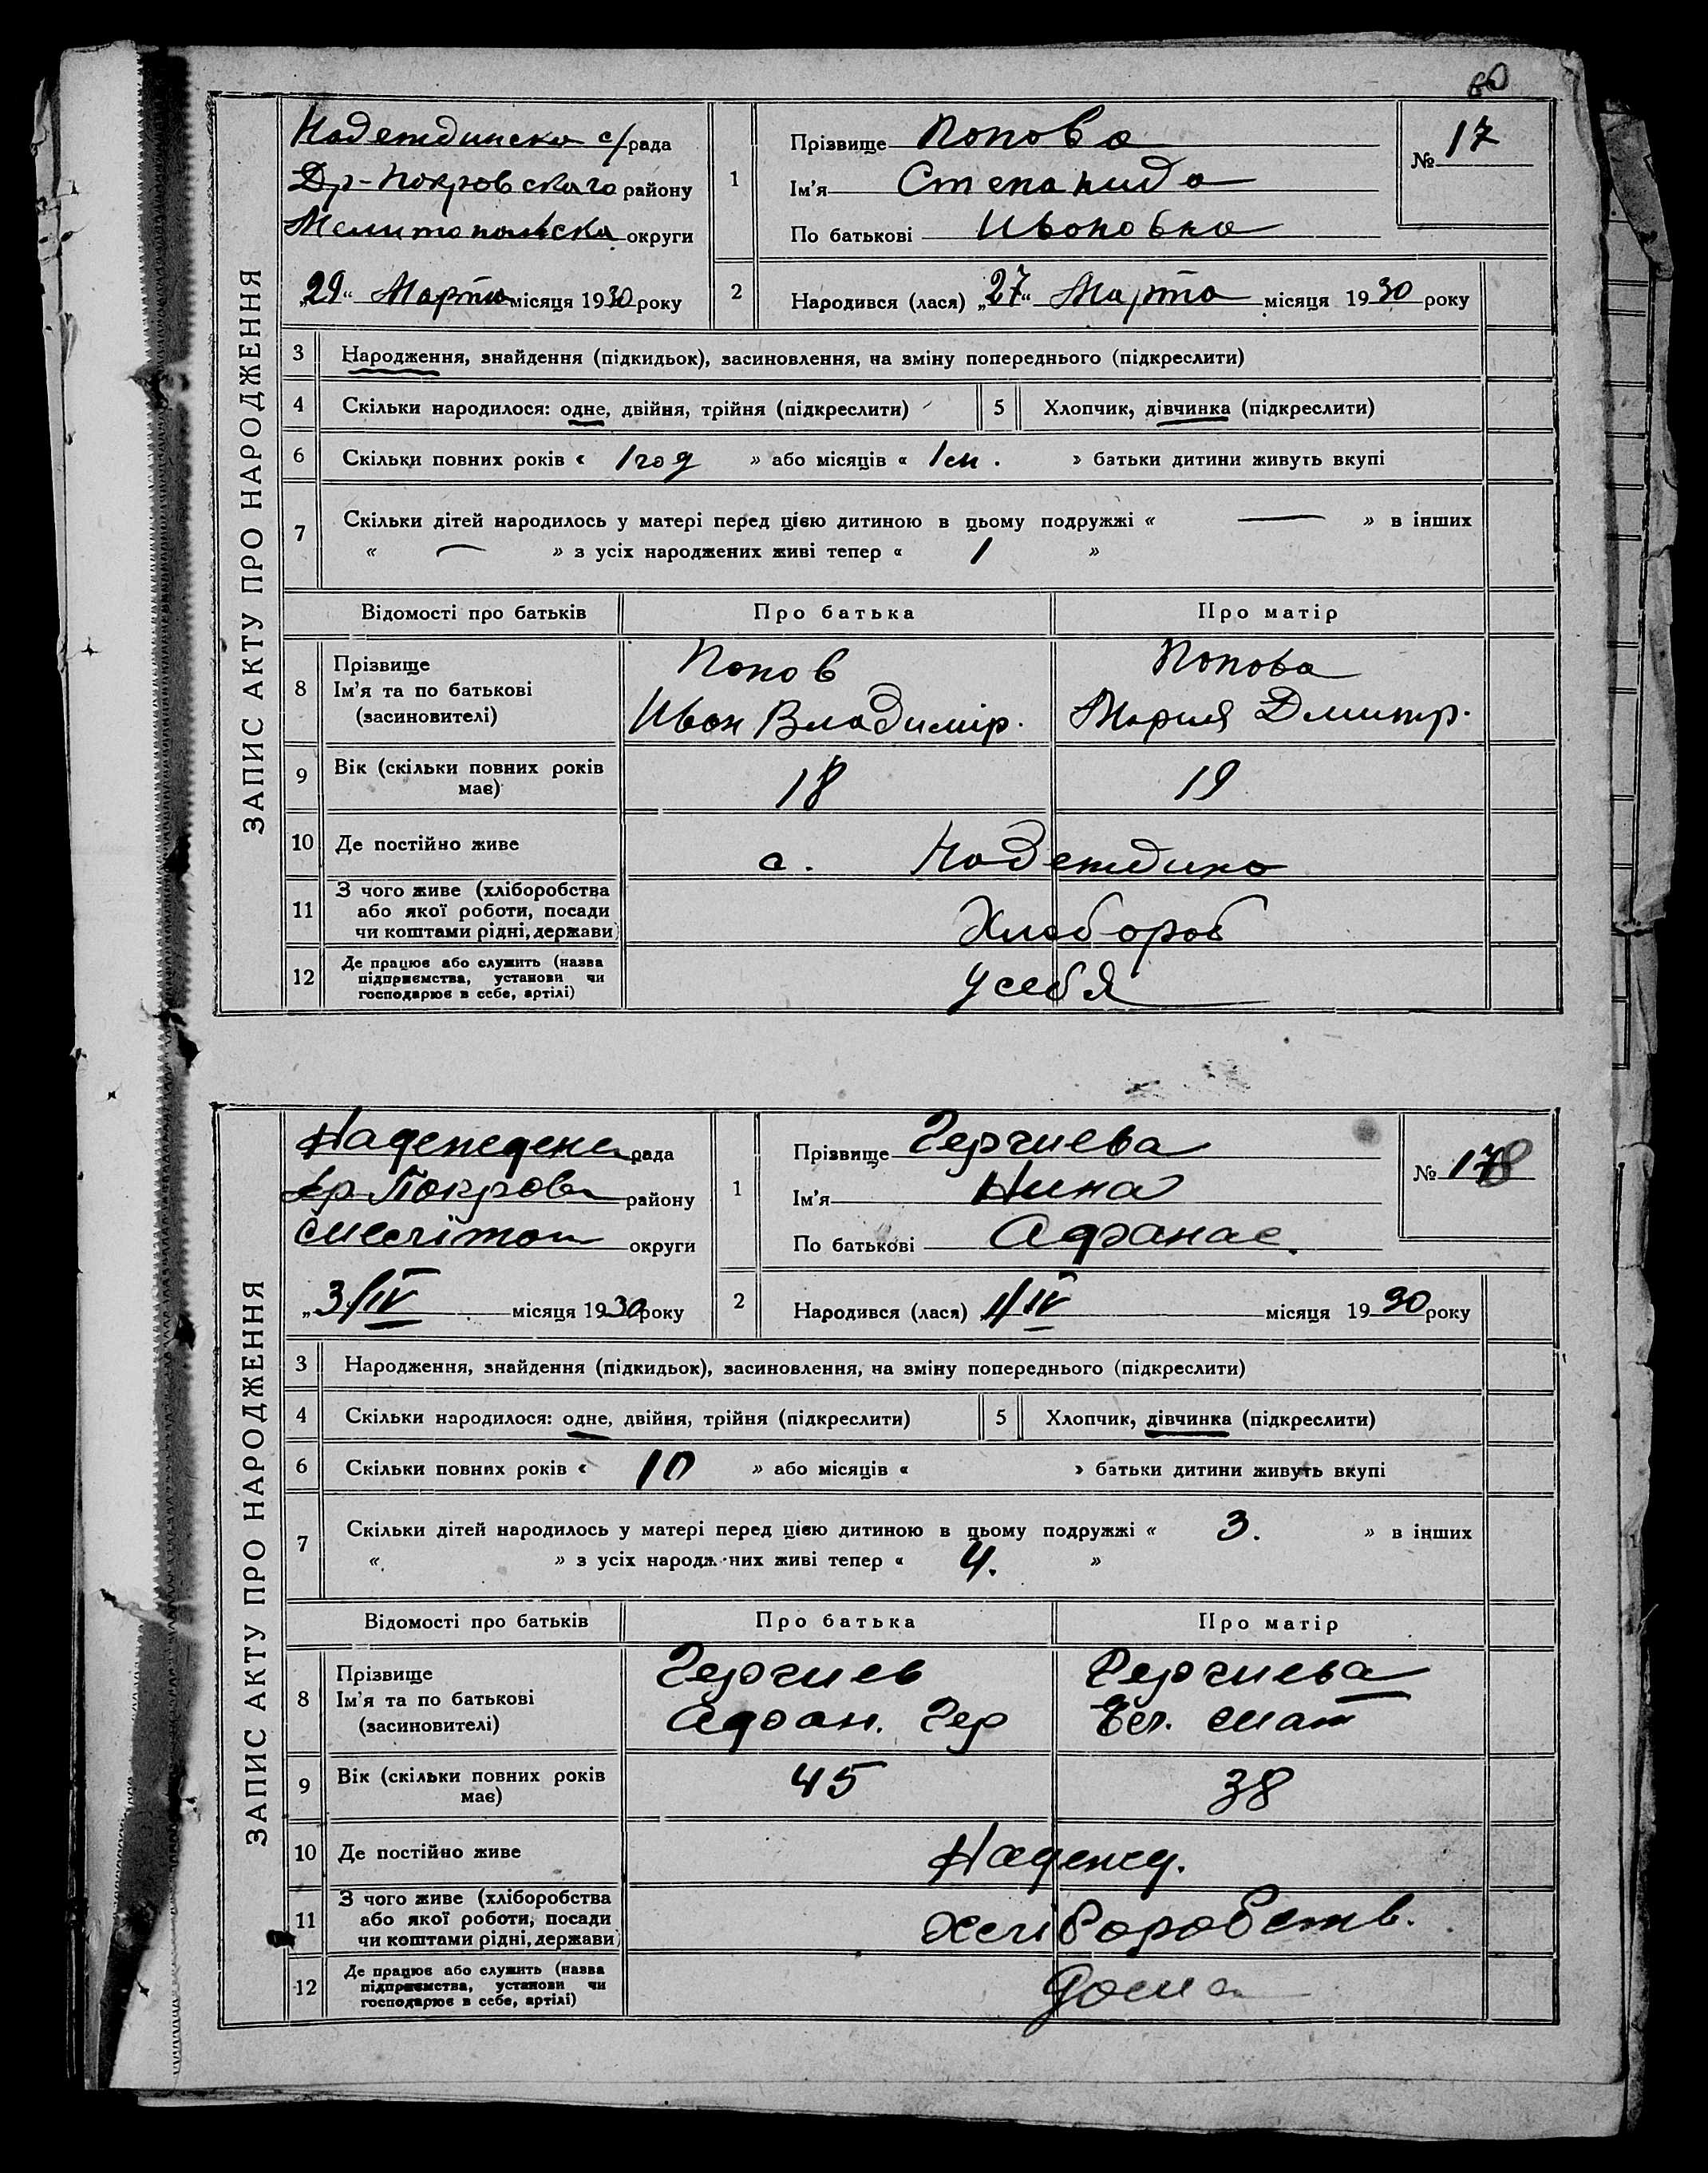 60
ЗАПИС АКТУ ПРО НАРОДЖЕННЯ
Надеждинска с/рада
Др-Покровскаго району
Мелитопольска округи
„29“ Марта місяця 1930 року
1
Прізвище Попова
Ім'я Степанида
По батькові Ивановна
№ 17
2
Народився (лася) „27“ Марта місяця 1930 року
3 Народження, знайдення (підкидьок), засиновлення, на зміну попереднього (підкреслити)
4 Скільки народилося: одне, двійня, трійня (підкреслити) 5 Хлопчик, дівчинка (підкреслити)
6 Скільки повних років « 1 год » або місяців « 1 м. » батьки дитини живуть вкупі
7 Скільки дітей народилось у матері перед цією дитиною в цьому подружжі « — » в інших
« — » з усіх народжених живі тепер « 1 »
Відомості про батьків Про батька Про матір
8 Прізвище Ім'я та по батькові (засиновителі)
Попов Попова
Иван Владимір. Мария Дмитр.
9 Вік (скільки повних років має) 18 19
10 Де постійно живе с. Надеждино
11 З чого живе (хліборобства або якої роботи, посади чи коштами рідні, держави) Хлебороб
12 Де працює або служить (назва підприємства, установи чи господарює в себе, артілі) у себя
ЗАПИС АКТУ ПРО НАРОДЖЕННЯ
рада
Др-Покров району
Мелітоп округи
„3/IV місяця 1930 року
1
Прізвище Герчиева
Ім'я Нина
По батькові Афанас.
№ 18
2
Народився (лася) 1/IV місяця 1930 року
3 Народження, знайдення (підкидьок), засиновлення, на зміну попереднього (підкреслити)
4 Скільки народилося: одне, двійня, трійня (підкреслити) 5 Хлопчик, дівчинка (підкреслити)
6 Скільки повних років « 10 » або місяців « » батьки дитини живуть вкупі
7 Скільки дітей народилось у матері перед цією дитиною в цьому подружжі « 3. » в інших
« » з усіх народжених живі тепер « 4. »
Відомості про батьків Про батька Про матір
8 Прізвище Ім'я та по батькові (засиновителі)
Герчиев Герчиева
Афан. Гер мат
9 Вік (скільки повних років має) 45 38
10 Де постійно живе Надежд.
11 З чого живе (хліборобства або якої роботи, посади чи коштами рідні, держави) Хліборобств.
12 Де працює або служить (назва підприємства, установи чи господарює в себе, артілі) Дома